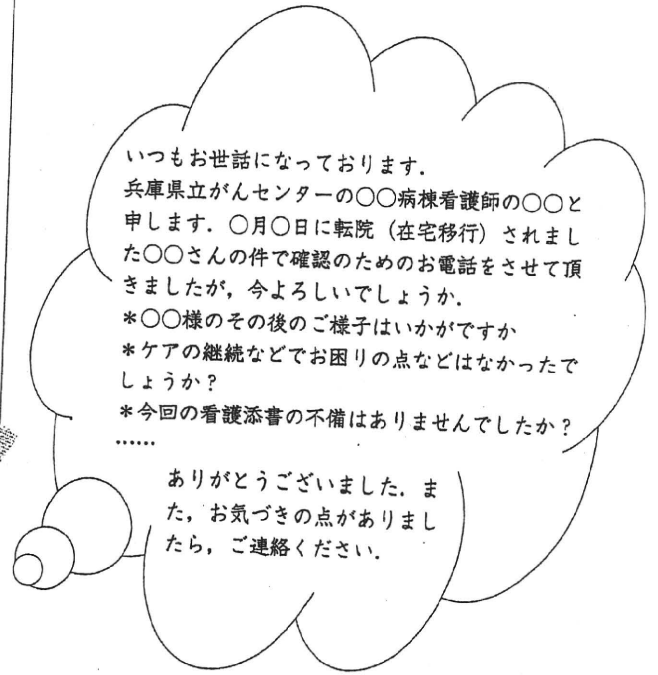 いつもお世話になっております．
兵庫県立がんセンターの〇〇病棟看護師の〇〇と
申します．〇月〇日に転院（在宅移行）されまし
た〇〇さんの件で確認のためのお電話をさせて頂
きましたが，今よろしいでしょうか．
＊〇〇様のその後のご様子はいかがですか
＊ケアの継続などでお困りの点などはなかったで
しょうか？
＊今回の看護添書の不備はありませんでしたか？
……
ありがとうございました．ま
た，お気づきの点がありまし
たら，ご連絡ください．